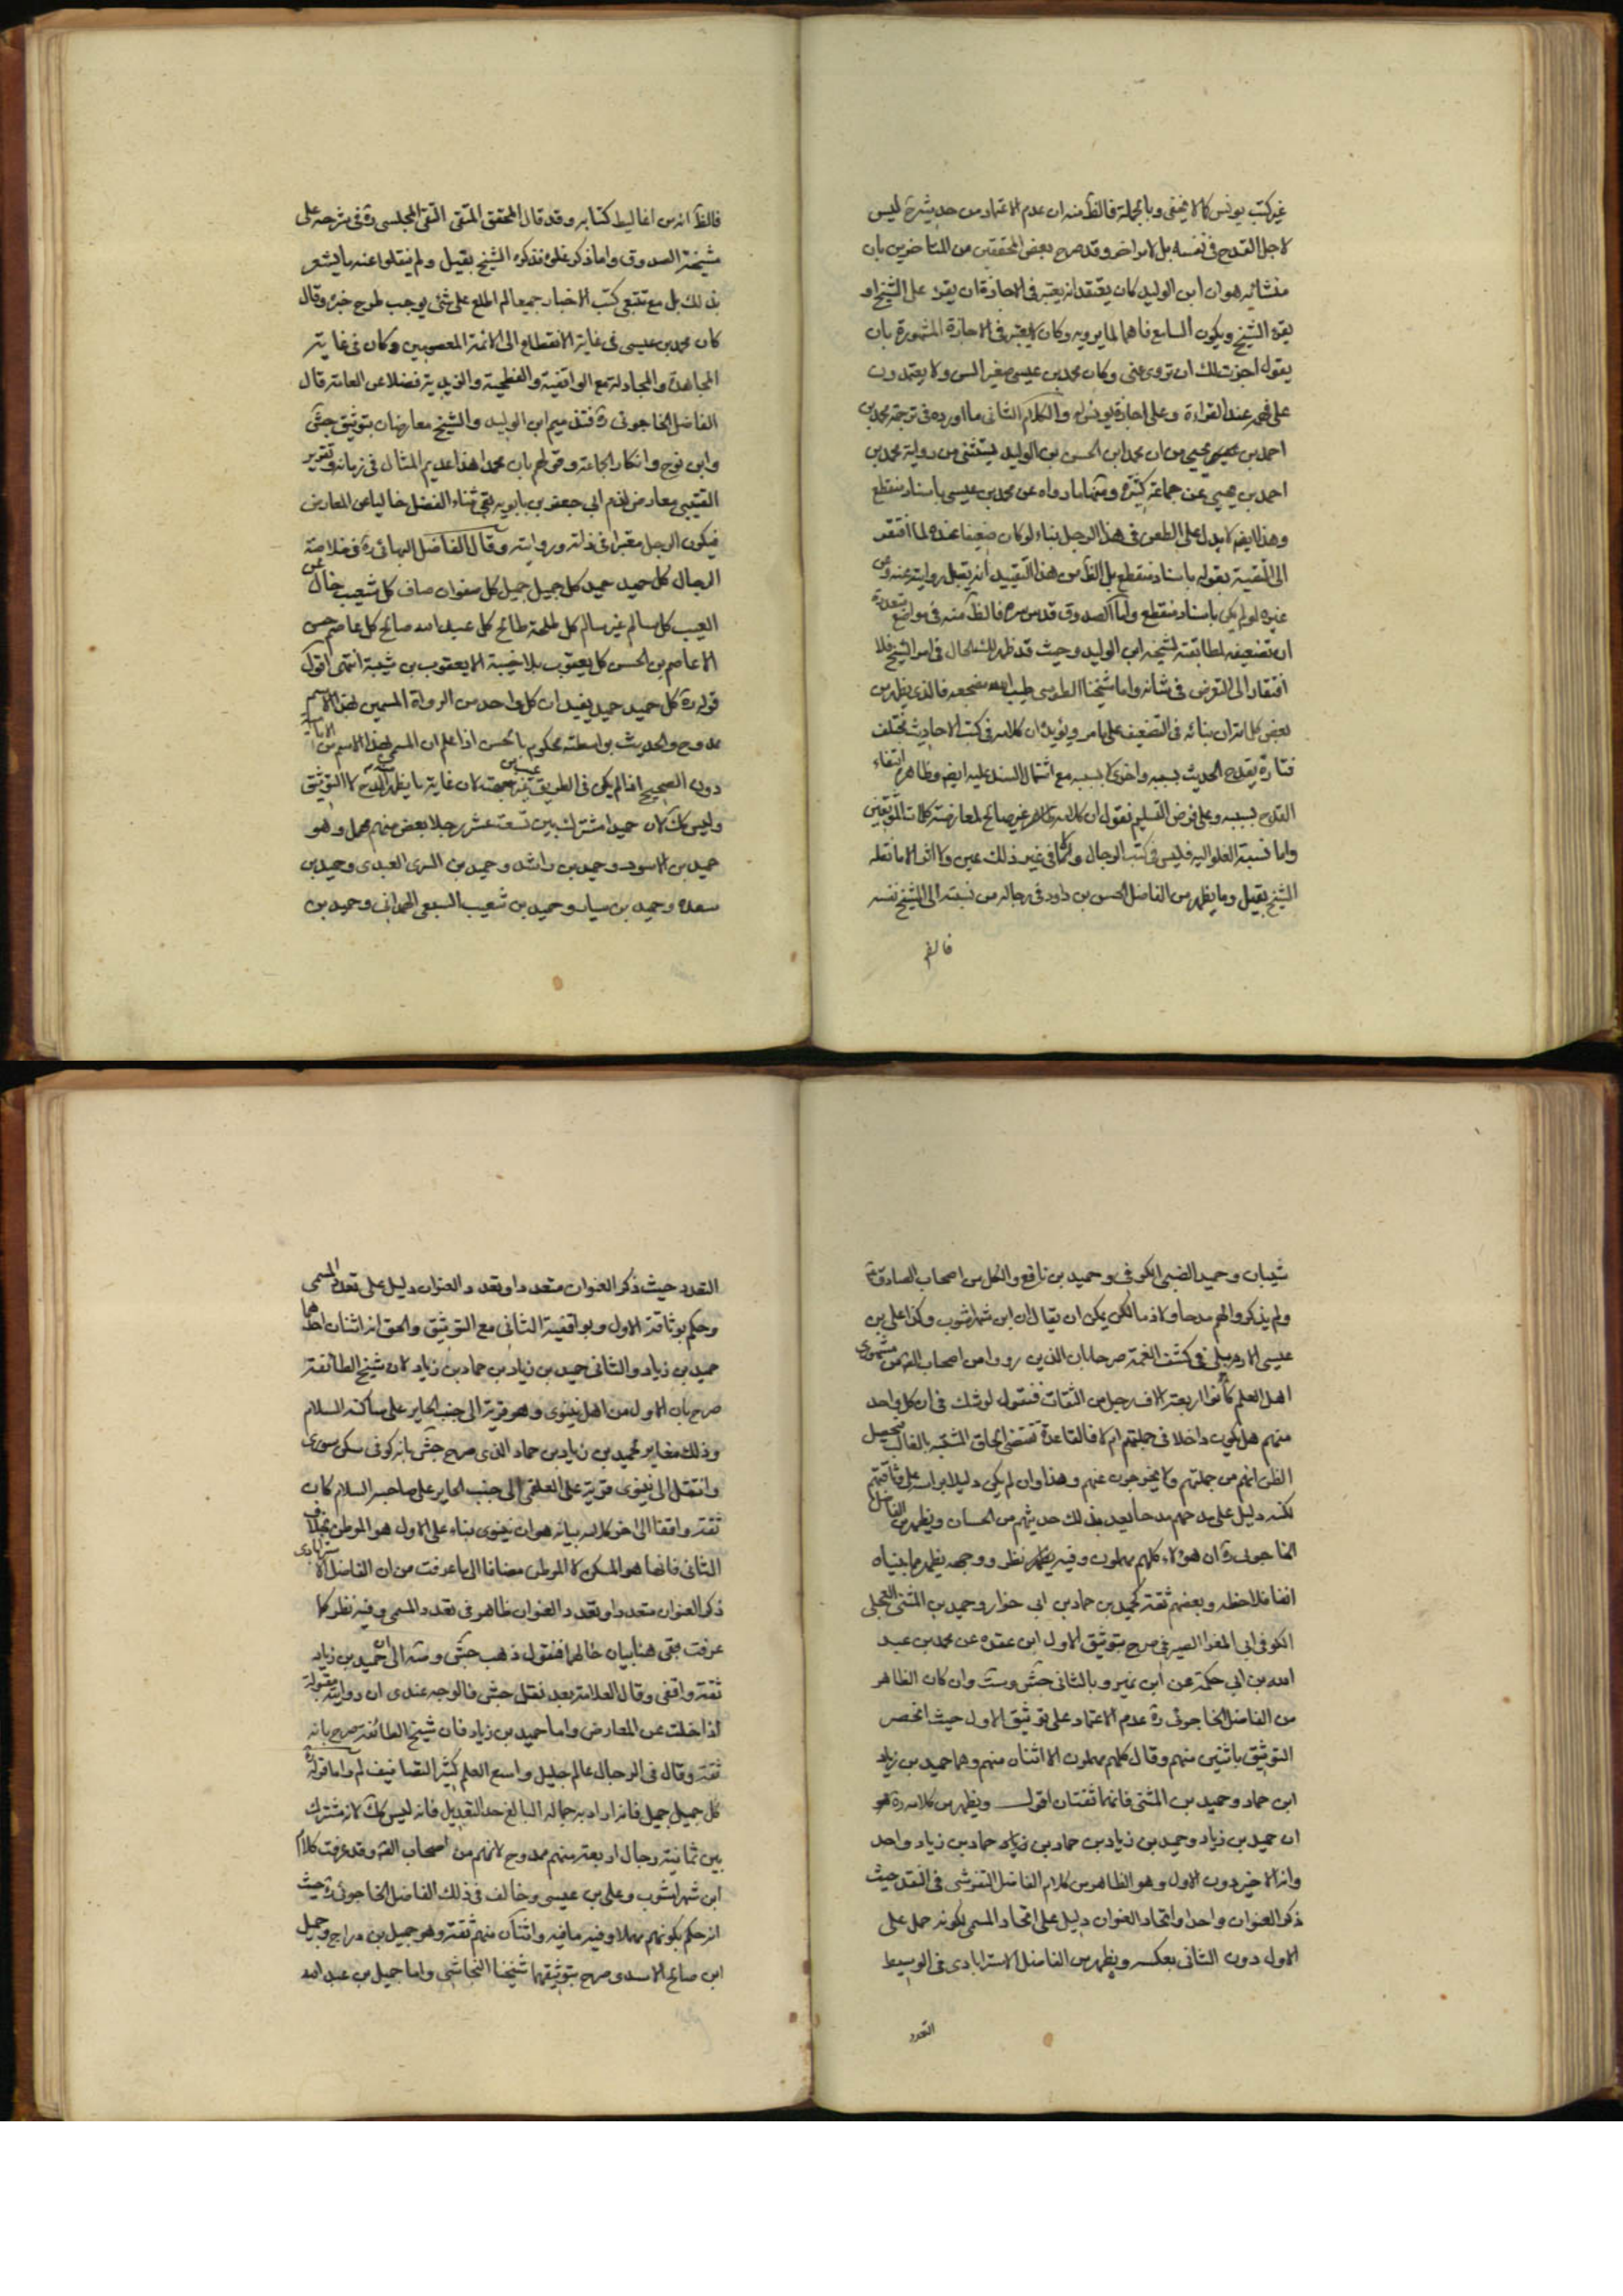 غير كتب يونس كما لا يخفى وبالجملة فالظ منه ان عدم الاعتماد من حديثه ره ليس
لاجل القدح في نفسه بل لامر اخر وقد صرح بعض المحققين من المتاخرين بان
منشائه هو ان ابن الوليد كان يعتقد انه يعتبر في الاجازة ان يقرء على الشيخ او
يقرء الشيخ ويكون السامع فاهما لما يرويه وكان لا يعتبر في الاجازة المشهورة بان
يقول اجزت لك ان تروى عنى وكان محمد بن عيسى صغير السن ولا يعتمدون
على فهمه عند القراءة وعلى اجازة يونس له والكلام الثانى ما اورده في ترجمة محمد بن
احمد بن يحيى من ان محمد ابن الحسن بن الوليد يستثنى من رواية محمد بن
احمد بن يحيى عن جماعة كثيرة ومنها ما رواه عن محمد بن عيسى باسناد منقطع
وهذا ايضم لا يدل على الطعن في هذا الرجل بناء لو كان ضعيفا عنده لما افتقر
الى التقييد بقوله باسناد منقطع بل الظ من هذا التقييد انه يقبل روايته عنه وعن
غيره لو لم يكن باسناد منقطع واما الصدوق قدس سره فالظ منه في مواضع متعددة
ان تضعيفه لمطابقته لشيخه ابن الوليد وحيث قد ظهر لك الحال في امر الشيخ فلا
افتقار الى التعرض في شانه واما شيخنا الطوسى طيب الله مضجعه فالذى يظهر من
بعض كلماته ان بنائه في التضعيف على ما مر ويؤيده ان كلامه في كتب الاحاديث مختلف
فتارة يقدح الحديث بسببه واخرى لا بسببه مع اشتمال السند عليه ايضم وظاهره انتفاء
القدح بسببه وعلى فرض التسليم نقول ان كلامه غير صالح لمعارضة كلمات الموثقين
واما نسبة الغلو اليه فليس في كتب الرجال ولا في غير ذلك عين ولا اثر الا ما نقله
الشيخ بقيل وما يظهر من الفاضل الحسن بن داود في رجاله من نسبته الى الشيخ نفسه
فالظ انه من اغاليط كتابه وقد قال المحقق المتقى التقى المجلسى ره في شرحه على
مشيخة الصدوق واما ذكر غلوه فذكره الشيخ بقيل ولم ينقلوا عنه ما يشعر
بذلك بل مع تتبعى كتب الاخبار جميعا لم اطلع على شئ يوجب طرح خبره وقال
كان محمد بن عيسى في غاية الانقطاع الى الائمة المعصومين وكان في غاية
المجاهدة والمجادلة مع الواقفية والفطحية والزيدية فضلا عن العامة قال
الفاضل الخاجوئى ره فتذميم ابن الوليد والشيخ معارضان بتوثيق جش
وابن نوح وانكار الجماعة وقولهم بان محمدا هذا عديم المثال في زمانه وتقرير
القتيبى معارض لذم ابي جعفر بن بابويه بقى ثناء الفضل خاليا عن المعارض
فيكون الرجل معتبرا في ذاته وروايته وقال الفاضل البهائى ره في خلاصة
الرجال كل حميد حميد كل جميل جميل كل صفوان صاف كل شعيب خال عن
العيب كل سالم غير سالم كل طلحة طالح كل عبد الله صالح كل عاصم حسن
الا عاصم بن الحسن كل يعقوب بلا خيبة الا يعقوب بن شيبة انتهى اقول
قوله ره كل حميد حميد يفيد ان كل واحد من الرواة المسمين بهذا الاسم
ممدوح والحديث بواسطته محكوم بالحسن اذا علم ان المسمى بهذا الاسم من الامامية
دون الصحيح اذا لم يكن في الطريق من جهته لان غاية ما يظهر المدح لا التوثيق
وليس كك لان حميدا مشترك بين تسعة عشر رجلا بعض منهم مهمل وهو
حميد بن الاسود وحميد بن راشد وحميد بن السرى العبدى وحميد بن
سعدة وحميد بن سيار وحميد بن شعيب السبعى الهمدانى وحميد بن
شيبان وحميد الضبى الكوفى وحميد بن نافع والكل من اصحاب الصادق ع
ولم يذكروا لهم مدحا ولا ذما لكن يمكن ان يقال ان ابن شهراشوب وكذا على بن
عيسى الاردبيلى في كشف الغمة صرحا بان الذين رووا من اصحاب الصم من مشهورى
اهل العلم كانوا اربعة الاف رجل من الثقات فنقول لو شك في ان كل واحد
منهم هل يكون داخلا في جملتهم ام لا فالقاعدة تقتضى الحاق المشتبه بالغالب فيحصل
الظن انهم من جملتهم ولا يخرجون عنهم وهذا وان لم يكن دليلا براسه على وثاقتهم
لكنه دليل على مدحهم مدحا يعد بذلك حديثهم من الحسان ويظهر من الفاضل
الخاجوئى ره ان هؤلاء كلهم مهملون وفيه نظر ووجهه يظهر مما بيناه
انفا فلاحظه وبعضهم ثقة كحميد بن حماد بن ابى خوار وحميد بن المثنى العجلى
الكوفى ابى المغرا الصيرفى صرح بتوثيق الاول ابن عقدة عن محمد بن عبد
الله بن ابى حكمة عن ابن نمير وبالثانى جش وست وان كان الظاهر
من الفاضل الخاجوئى ره عدم الاعتماد على توثيق الاول حيث انحصر
التوثيق باثنين منهم وقال كلهم مهملون الا اثنان منهم وهما حميد بن زياد
ابن حماد وحميد بن المثنى فانهما ثقتان اقول ويظهر من كلامه ره
ان حميد بن زياد وحميد بن زياد بن حماد بن زياد حماد بن زياد واحد
وانه الاخير دون الاول وهو الظاهر من كلام الفاضل التفرشى في النقد حيث
ذكر العنوان واحدا واتحاد العنوان دليل على اتحاد المسمى لكونه حمل على
الاول دون الثانى بعكسه ويظهر من الفاضل الاسترابادى في الوسيط
التعدد
التعدد حيث ذكر العنوان متعددا وتعدد العنوان دليل على تعدد المسمى
وحكم بوثاقة الاول وبواقفية الثانى مع التوثيق والحق انه اثنان احدهما
حميد بن زياد والثانى حميد بن زياد بن حماد بن زياد لان شيخ الطائفة
صرح بان الاول من اهل نينوى وهو قرية الى جنب الحاير على ساكنه السلام
وذلك مغاير لحميد بن زياد بن حماد الذى صرح جش بانه كوفى سكن سورى
وانتقل الى نينوى قرية على العلقمى الى جنب الحاير على صاحبه السلام كان
ثقة واقفا الى اخر كلامه بيانه هو ان نينوى بناء على الاول هو الموطن بخلاف
الثانى فانها هو المسكن لا الموطن مضافا الى ما عرفت من ان الفاضل الاسترابادى
ذكر العنوان متعددا وتعدد العنوان ظاهر في تعدد المسمى وفيه نظر كما
عرفت بقى هنا بيان حالهما فنقول ذهب جش ومته الى ان حميد بن زياد
ثقة واقفى وقال العلامة بعد نقل جش فالوجه عندى ان روايته مقبولة
اذا خلت عن المعارض واما حميد بن زياد فان شيخ الطائفة صرح بانه
ثقة وقال في الرجال عالم جليل واسع العلم كثير التصانيف لم واما قوله ره
كل جميل جميل فانه اراد به جماله البالغ حد التعديل فانه ليس كك لانه مشترك
بين ثمانية رجال اربعة منهم ممدوح لانهم من اصحاب الصم وقد عرفت كلام
ابن شهراشوب وعلى بن عيسى وخالف في ذلك الفاضل الخاجوئى ره حيث
انه حكم بكونهم مهملا وفيه ما فيه واثنان منهم ثقة وهو جميل بن دراج وجميل
ابن صالح الاسدى صرح بتوثيقهما شيخنا النجاشى واما جميل بن عبد الله